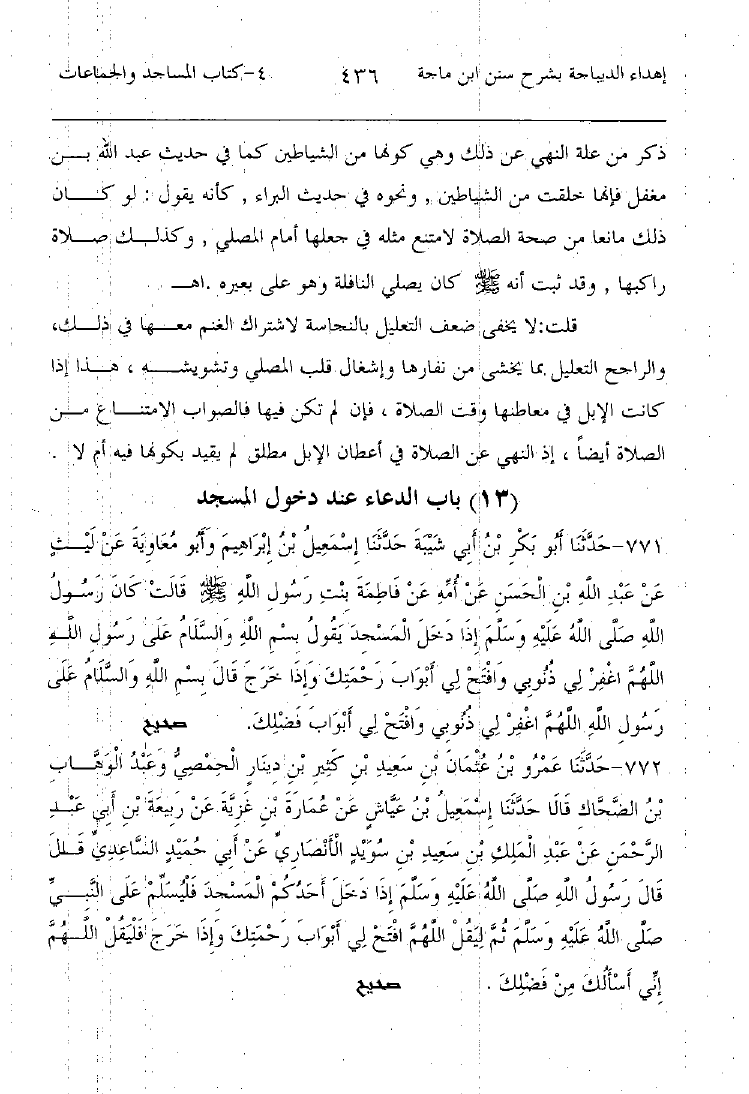 إهداء الديباجة بشرح سنن ابن ماجة ٤٣٦ ٤-كتاب المساجد والجماعات
ذكر من علة النهي عن ذلك وهي كونها من الشياطين كما في حديث عبد الله بــن
مغفل فإنها خلقت من الشياطين , ونحوه في حديث البراء , كأنه يقول : لو كــان
ذلك مانعا من صحة الصلاة لامتنع مثله في جعلها أمام المصلي , وكذلـك صـلاة
راكبها , وقد ثبت أنه ﷺ كان يصلي النافلة وهو على بعيره .اهـ
قلت:لا يخفى ضعف التعليل بالنجاسة لاشتراك الغنم معــها في ذلــك،
والراجح التعليل بما يخشى من نفارها وإشغال قلب المصلي وتشويشــه ، هــذا إذا
كانت الإبل في معاطنها وقت الصلاة ، فإن لم تكن فيها فالصواب الامتنــاع مــن
الصلاة أيضاً ، إذ النهي عن الصلاة في أعطان الإبل مطلق لم يقيد بكونها فيه أم لا .
(١٣) باب الدعاء عند دخول المسجد
٧٧١-حَدَّثَنَا أَبُو بَكْرِ بْنُ أَبِي شَيْبَةَ حَدَّثَنَا إِسْمَعِيلُ بْنُ إِبْرَاهِيمَ وَأَبُو مُعَاوِيَةَ عَنْ لَيْــثٍ
عَنْ عَبْدِ اللَّهِ بْنِ الْحَسَنِ عَنْ أُمِّهِ عَنْ فَاطِمَةَ بِنْتِ رَسُولِ اللَّهِ ﷺ قَالَتْ كَانَ رَسُــولُ
اللَّهِ صَلَّى اللَّهُ عَلَيْهِ وَسَلَّمَ إِذَا دَخَلَ الْمَسْجِدَ يَقُولُ بِسْمِ اللَّهِ وَالسَّلَامُ عَلَى رَسُولِ اللَّــهِ
اللَّهُمَّ اغْفِرْ لِي ذُنُوبِي وَافْتَحْ لِي أَبْوَابَ رَحْمَتِكَ وَإِذَا خَرَجَ قَالَ بِسْمِ اللَّهِ وَالسَّلَامُ عَلَى
رَسُولِ اللَّهِ اللَّهُمَّ اغْفِرْ لِي ذُنُوبِي وَافْتَحْ لِي أَبْوَابَ فَضْلِكَ. صحيح
٧٧٢-حَدَّثَنَا عَمْرُو بْنُ عُثْمَانَ بْنِ سَعِيدِ بْنِ كَثِيرِ بْنِ دِينَارٍ الْحِمْصِيُّ وَعَبْدُ الْوَهَّــابِ
بْنُ الضَّحَّاكِ قَالَا حَدَّثَنَا إِسْمَعِيلُ بْنُ عَيَّاشٍ عَنْ عُمَارَةَ بْنِ غَزِيَّةَ عَنْ رَبِيعَةَ بْنِ أَبِي عَبْــدِ
الرَّحْمَنِ عَنْ عَبْدِ الْمَلِكِ بْنِ سَعِيدِ بْنِ سُوَيْدٍ الْأَنْصَارِيِّ عَنْ أَبِي حُمَيْدٍ السَّاعِدِيِّ قَــالَ
قَالَ رَسُولُ اللَّهِ صَلَّى اللَّهُ عَلَيْهِ وَسَلَّمَ إِذَا دَخَلَ أَحَدُكُمْ الْمَسْجِدَ فَلْيُسَلِّمْ عَلَى النَّبِــيِّ
صَلَّى اللَّهُ عَلَيْهِ وَسَلَّمَ ثُمَّ لِيَقُلْ اللَّهُمَّ افْتَحْ لِي أَبْوَابَ رَحْمَتِكَ وَإِذَا خَرَجَ فَلْيَقُلْ اللَّــهُمَّ
إِنِّي أَسْأَلُكَ مِنْ فَضْلِكَ . صحيح